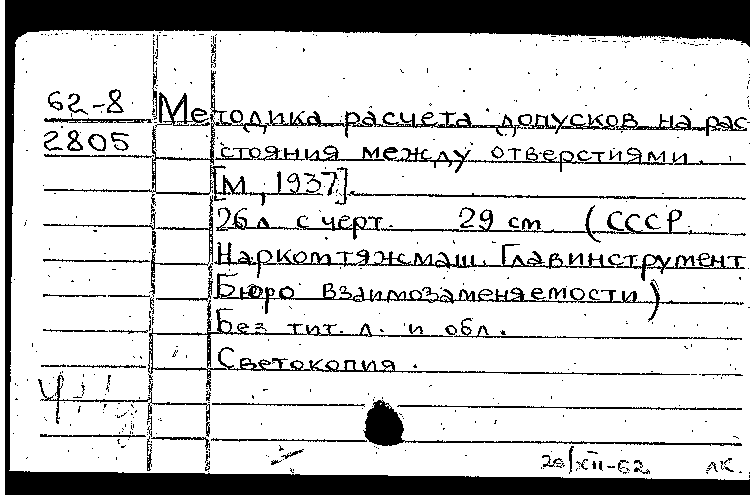 62-8 Методика расчета допусков на рас-
2805 стояния между отверстиями.
[М., 1937].
26 л с черт. 29 cm (СССР.
Наркомтяжмаш. Главинструмент
Бюро взаимозаменяемости).
Без тит. л. и обл.
Светокопия.
20/XII-62 ЛК.